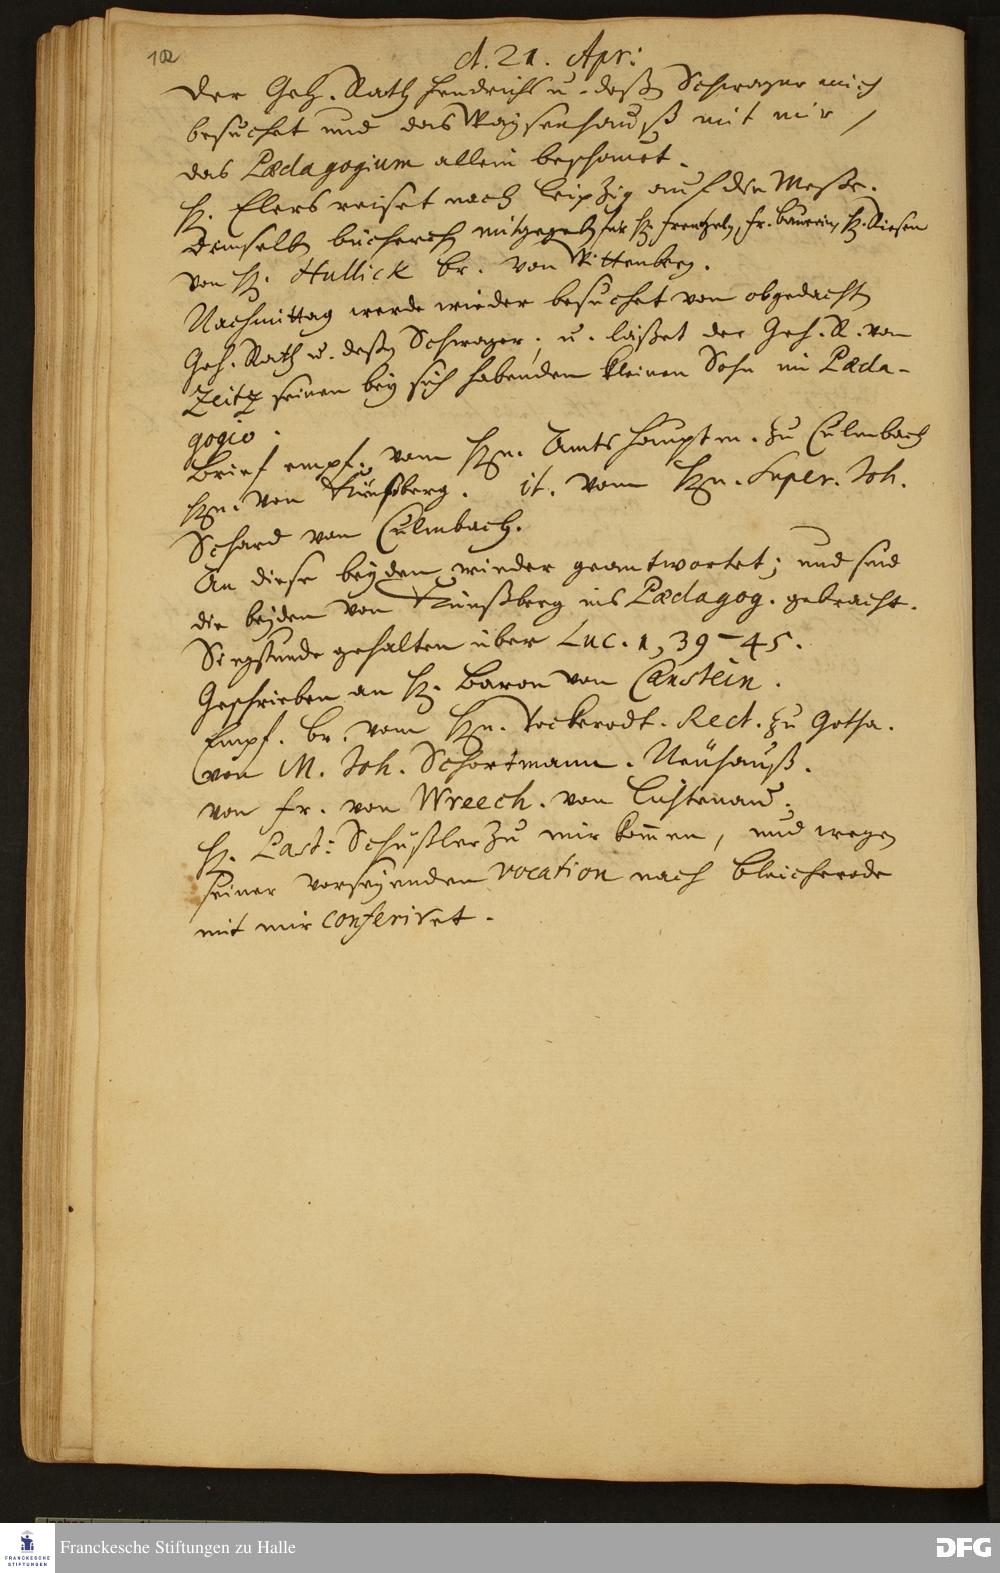 102
d. 21. Apr:
Der Geh. Rath Hendrichs u. deßen Schwager mich
besuchet und das Waysenhauß mit mir,
das Pædagogium allein beschauet.
H. Elers reiset nach Leipzig auf die Meße.
Demselben bücherch mitgegeben für H. Frentzeln, Fr. Bäuerin, H. Riesen
von H. Hullick br. von Wittenberg.
Nachmittag werde wieder besuchet von obgedachten
Geh. Rath u. deßen Schwager; u. läßet der Geh. R. von
Zeitz seinen bey sich habenden kleinen Sohn im Pæda-
gogio.
Brief empf. vom Hn. Amtshauptm. zu Culmbach
Hn. von Künßberg. it. vom Hn. Super. Joh.
Schard von Culmbach.
An diese beyden wieder geantwortet; und sind
die beyden von Künßberg ins Pædagog. gebracht.
Singstunde gehalten über Luc. 1, 39-45.
Geschrieben an H. Baron von Canstein.
Empf. br. vom Hn. Vockerodt. Rect. zu Gotha.
von M. Joh. Schortmann. Neuhauß.
von Fr. von Wreech. von Lichtenau.
H. Past: Schüßler zu mir kommen, und wegen
seiner vorseyenden vocation nach Bleicherode
mit mir conferiret.
FRANCKESCHE STIFTUNGEN
Franckesche Stiftungen zu Halle
DFG